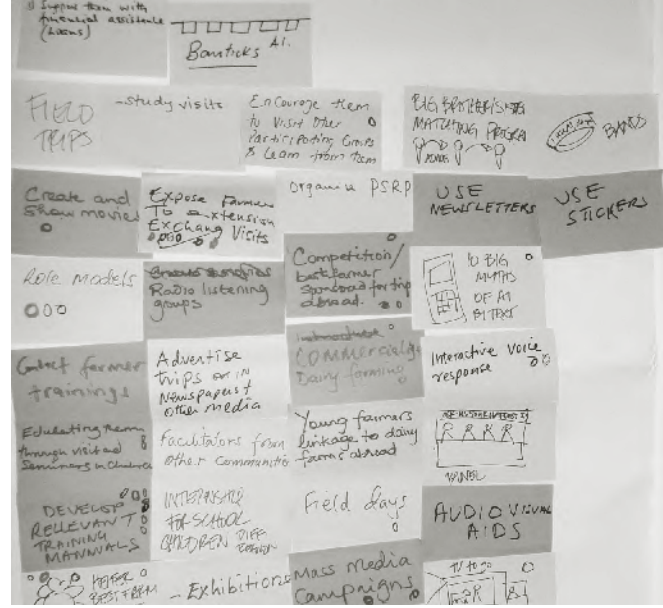 Support them with
financial assistance
(Loans)
Bomticks A.I.
FIELD
TRIPS
-study visits
Encourage them
to visit Other
Participating Groups
& Learn from them
BIG BROTHER/SIS
MATCHING PROGRAM
BANDS
Create and
Show movies
Expose farmers
To extension
Exchang Visits
Organise PSRP
USE
NEWSLETTERS
USE
STICKERS
Role Models
Radio listening
groups
Competition/
best farmer
sponsored for trip
abroad.
10 BIG
MYTHS
OF AI
BY TEXT
Contact farmer
trainings
Advertise
trips or in
Newspapers &
Other media
COMMERCIALize
Dairy farming
Interactive voice
response
Educating them
through visits and
Seminars in
Facilitators from
Other Communities
Young farmers
linkage to dairy
farms abroad
PANEL
DEVELOP
RELLEVANT
TRAINING
MANNUALS
INTERNSHIP
FOR SCHOOL
CHILDREN DIFF
REGION
Field days
AUDIO VISUAL
AIDS
BEST FARM
- Exhibitions
Mass media
Campaigns
TV to go